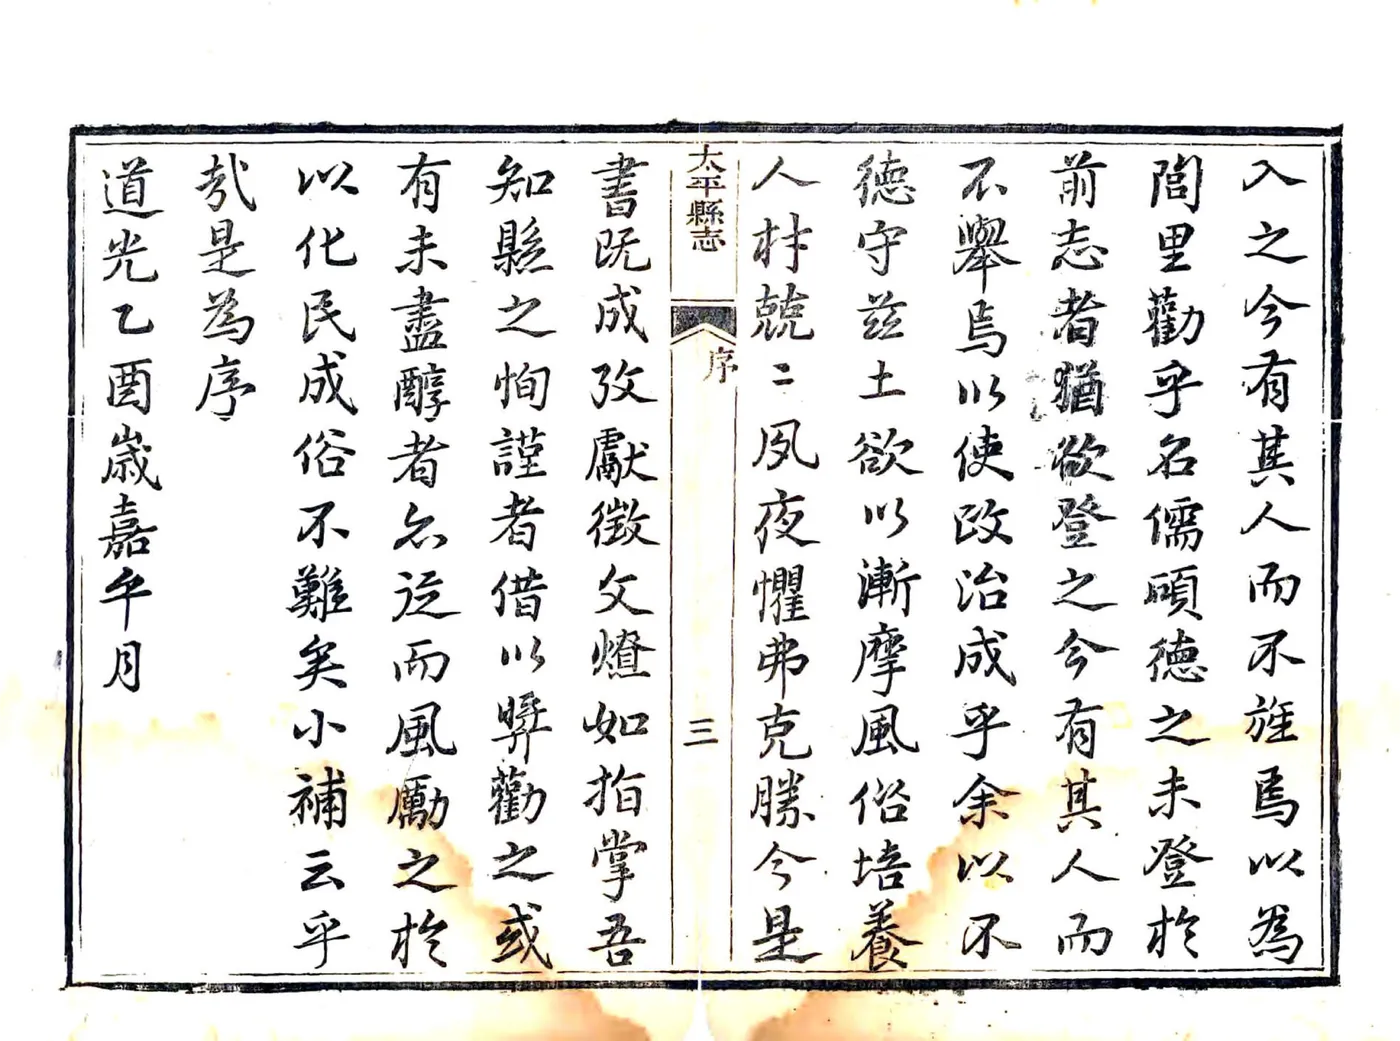 入之今有其人而不旌焉以為
閭里勸乎名儒碩德之未登於
前志者猶欲登之今有其人而
不舉焉以使政治成乎余以不
德守茲土欲以漸摩風俗培養
人材兢二夙夜懼弗克勝今是
太平縣志
序
三
書既成攷獻徵文燎如指掌吾
知縣之恂謹者借以舉勸之或
有未盡醇者亦從而風勵之於
以化民成俗不難矣小補云乎
哉是為序
道光乙酉歲嘉平月